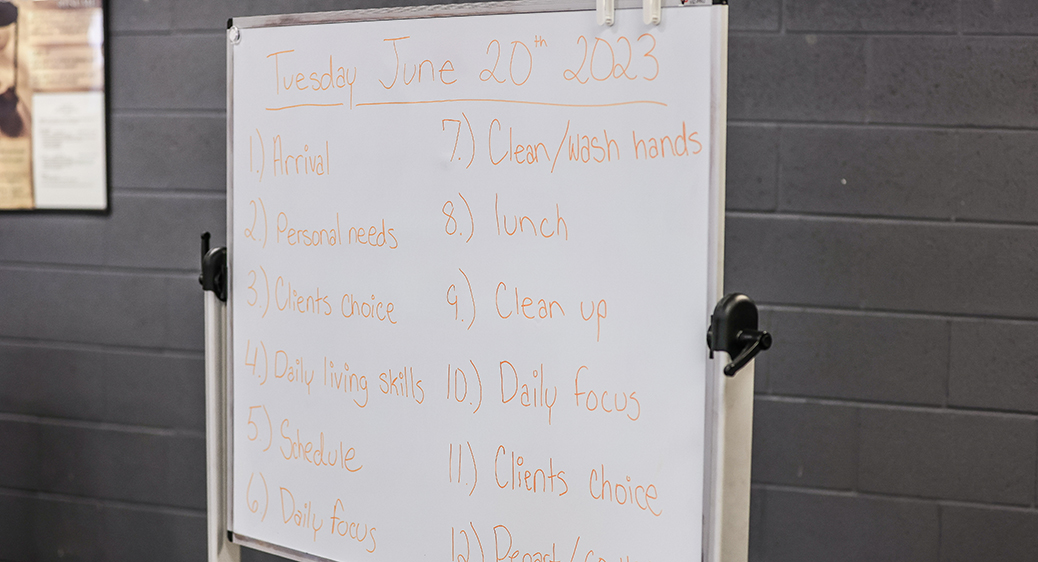 Tuesday June 20th 2023
1.) Arrival
2) Personal needs
3.) Clients choice
4.) Daily living skills
5) Schedule
6.) Daily focus
7.) Clean/Wash hands
8.) lunch
9.) Clean up
10.) Daily focus
11.) Clients choice
12.)